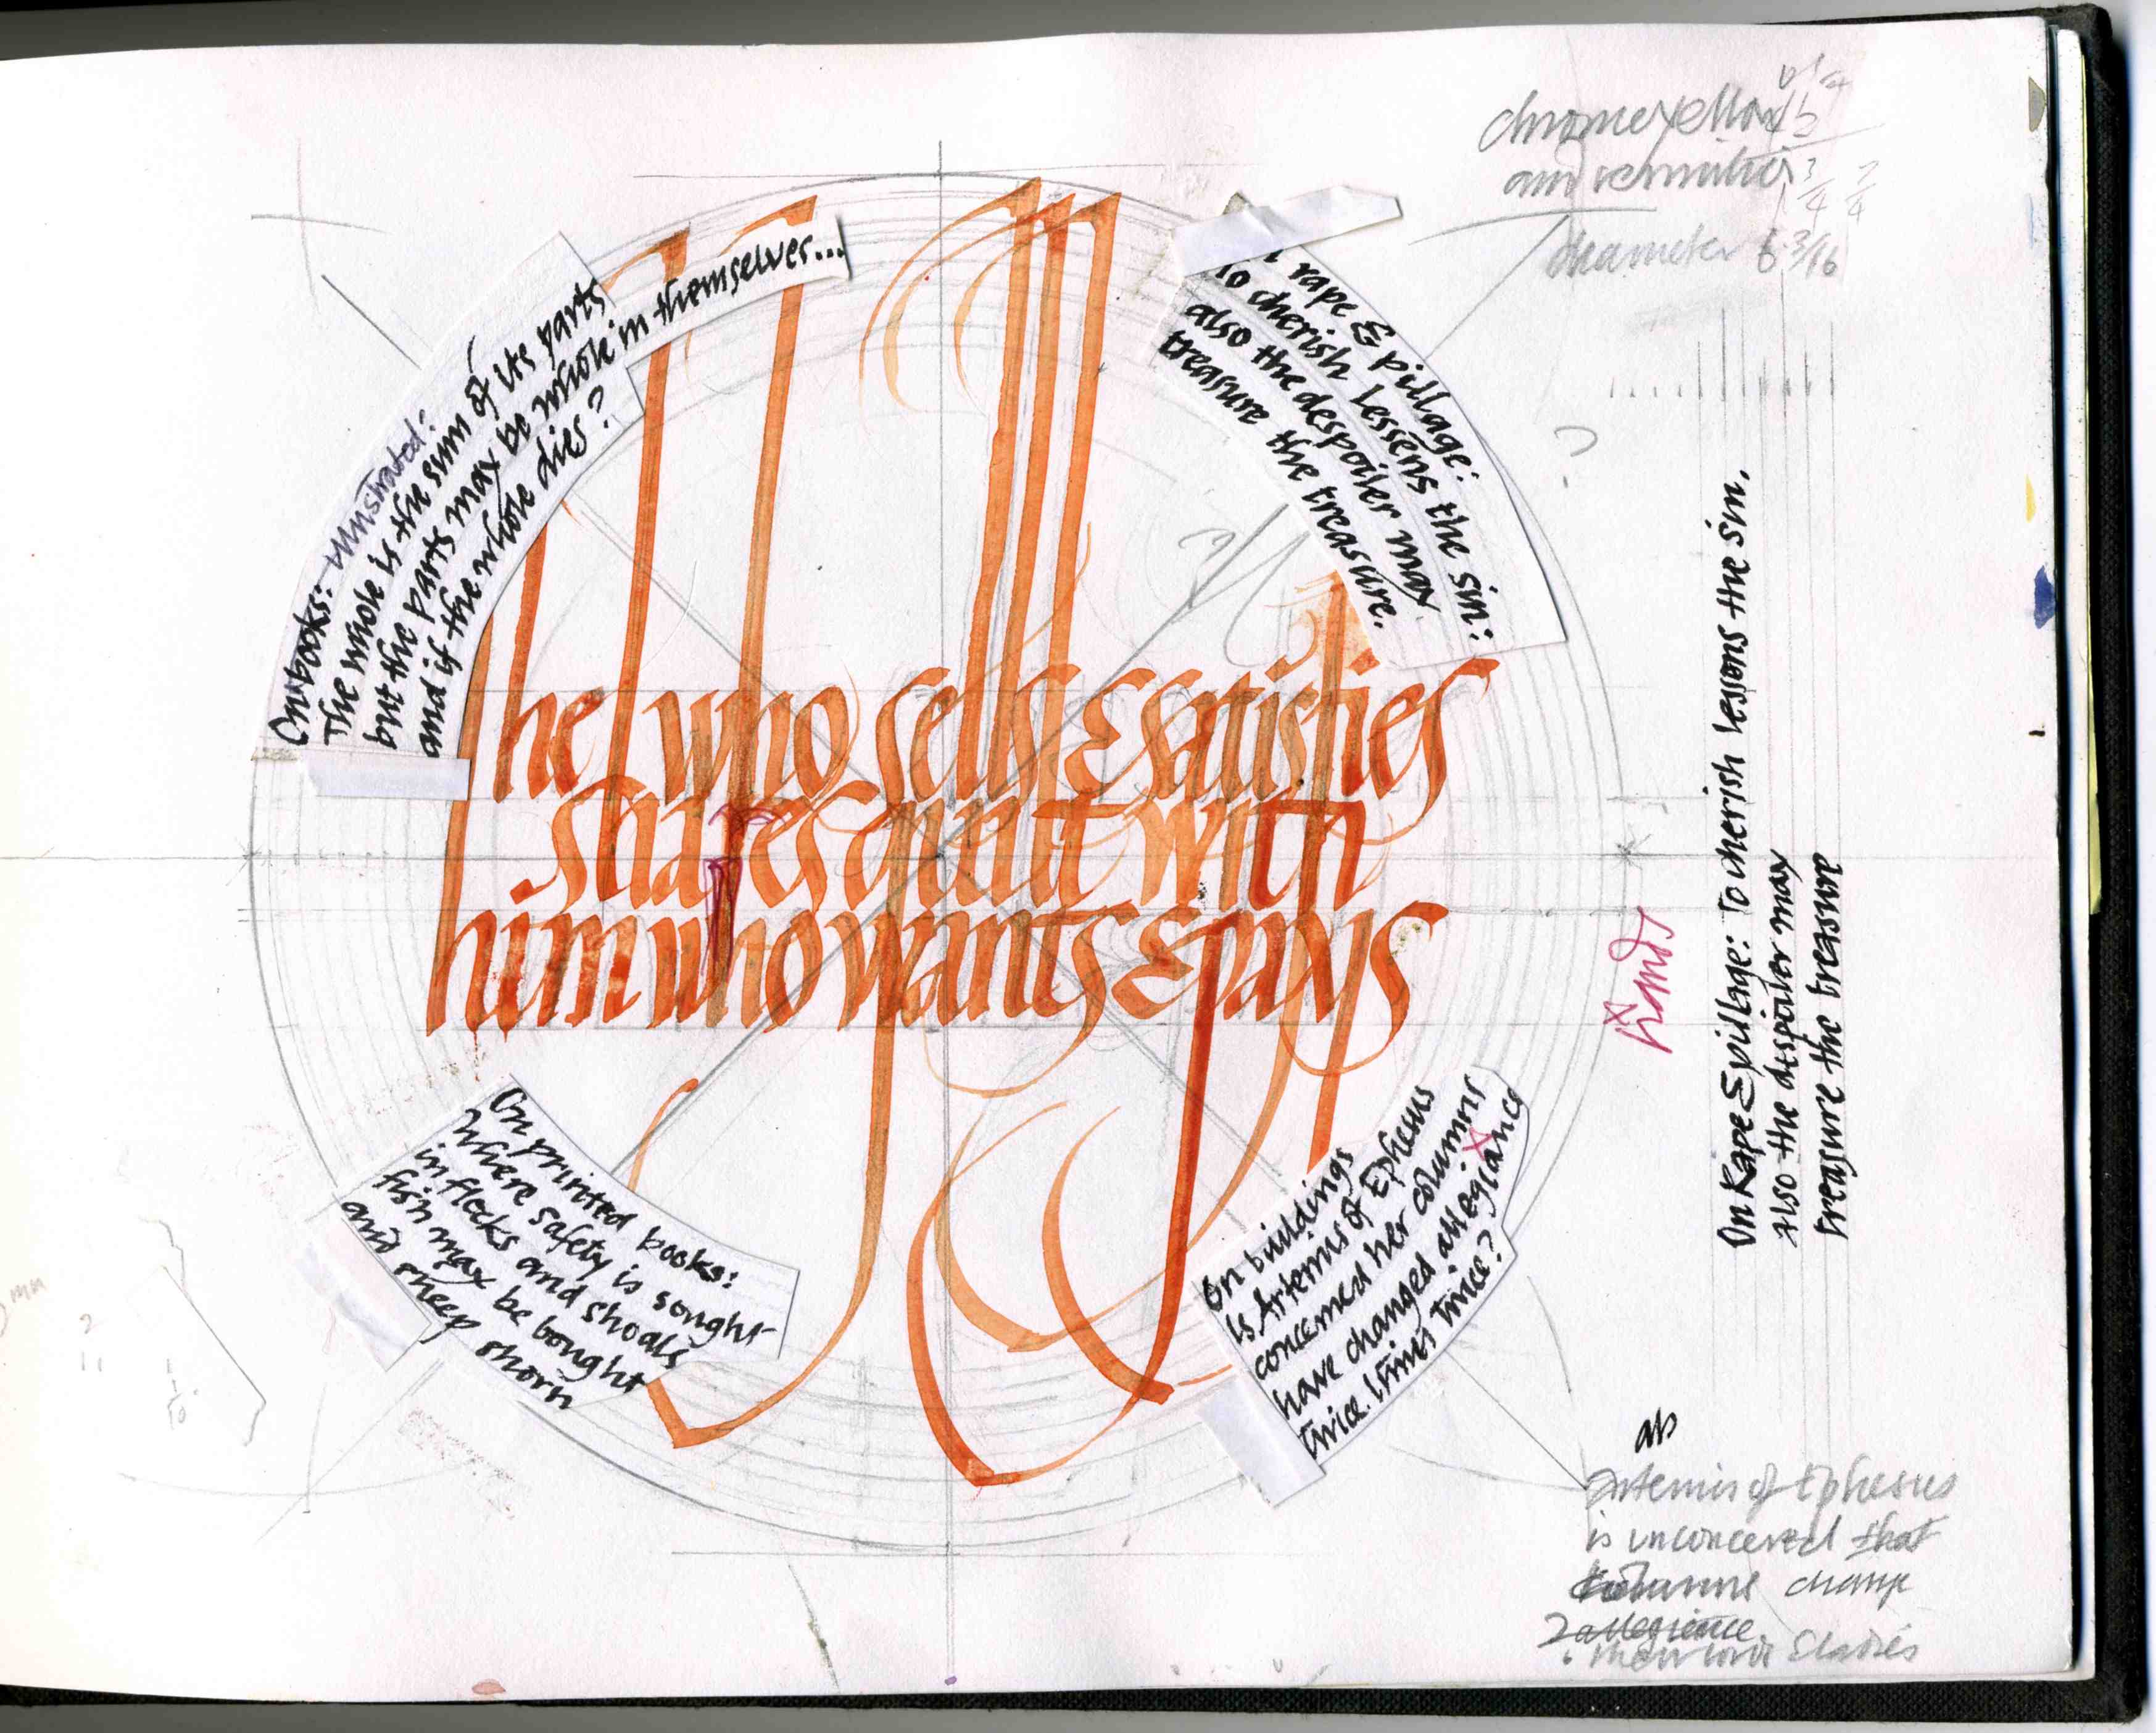 On books: Illustrated:
The whole is the sum of its parts
but the parts may be whole in themselves...
and if the whole dies?
rape & pillage:
To cherish lessens the sin:
also the despoiler may
treasure the treasure.
he who sells & satisfies
shares guilt with
him who wants & pays
On printed books:
Where safety is sought
in flocks and shoals
fish may be bought
and sheep shorn
On buildings
Is Artemis of Ephesus
concerned her columns
have changed allegiance
twice. twice?
chrome yellow
and vermilion
diameter 6 3/16
?
On Rape & pillage: To cherish lessons the sin.
also the despoiler may
treasure the treasure
hands
Artemis of Ephesus
is unconcerned that
change
allegience